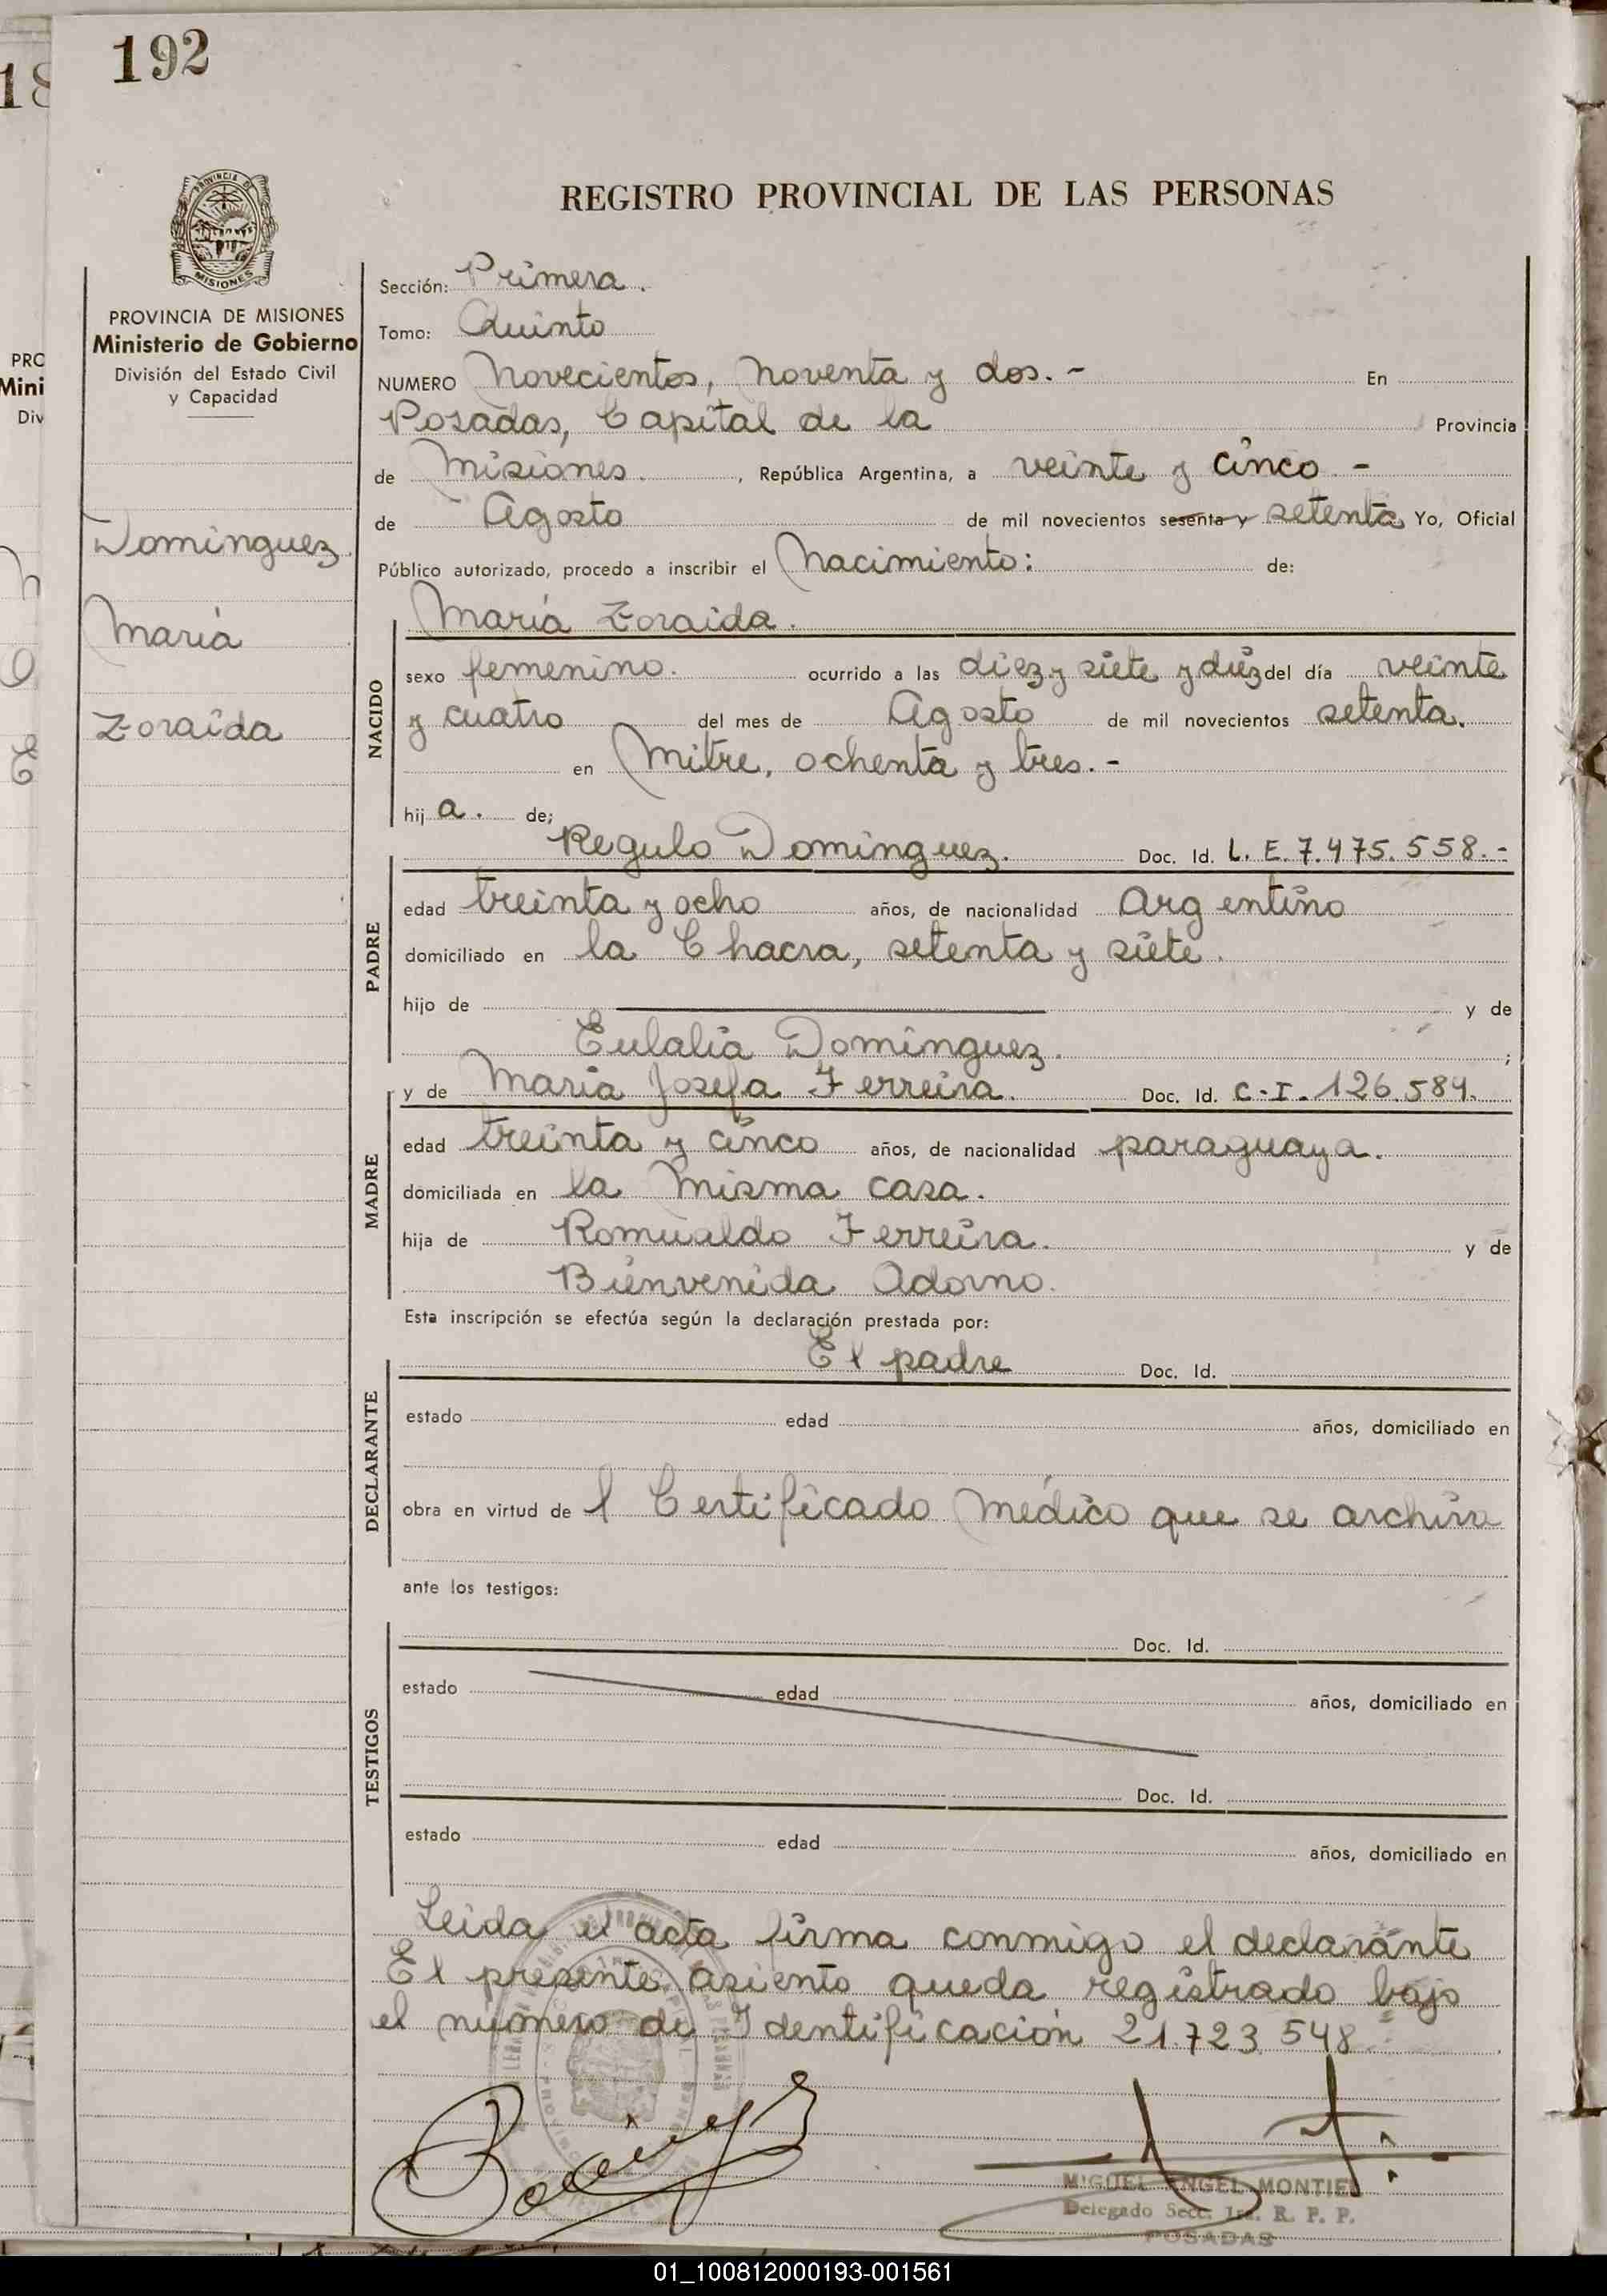 192
18
REGISTRO PROVINCIAL DE LAS PERSONAS
PROVINCIA DE
MISIONES
PROVINCIA DE MISIONES
Ministerio de Gobierno
División del Estado Civil
y Capacidad
PRO
Mini
Div
Dominguez
María
Zoraida
Sección: Primera.
Tomo: Quinto
NUMERO Novecientos, Noventa y dos.- En
Posadas, Capital de la Provincia
de Misiones. , República Argentina, a veinte y cinco -
de Agosto de mil novecientos sesenta y setenta Yo, Oficial
Público autorizado, procedo a inscribir el Nacimiento: de:
María Zoraida.
NACIDO
sexo femenino. ocurrido a las diez y siete y diez del día veinte
y cuatro del mes de Agosto de mil novecientos setenta.
en Mitre, ochenta y tres.-
hij a. de;
Regulo Dominguez. Doc. Id. L. E. 7.475.558.-
PADRE
edad treinta y ocho años, de nacionalidad Argentino
domiciliado en la Chacra, setenta y siete.
hijo de y de
Eulalia Dominguez. ;
y de María Josefa Ferreira. Doc. Id. C-I. 126.584.
MADRE
edad treinta y cinco años, de nacionalidad paraguaya.
domiciliada en la misma casa.
hija de Romualdo Ferreira. y de
Bienvenida Adorno.
Esta inscripción se efectúa según la declaración prestada por:
El padre Doc. Id.
DECLARANTE
estado edad años, domiciliado en
obra en virtud de l Certificado médico que se archiva
ante los testigos:
Doc. Id.
TESTIGOS
estado edad años, domiciliado en
Doc. Id.
estado edad años, domiciliado en
Leida el acta firma conmigo el declarante
El presente asiento queda registrado bajo
el número de Identificación 21.723.548
MIGUEL ANGEL MONTIEL
Delegado Secc. 1ra. R. P. P.
POSADAS
01_100812000193-001561